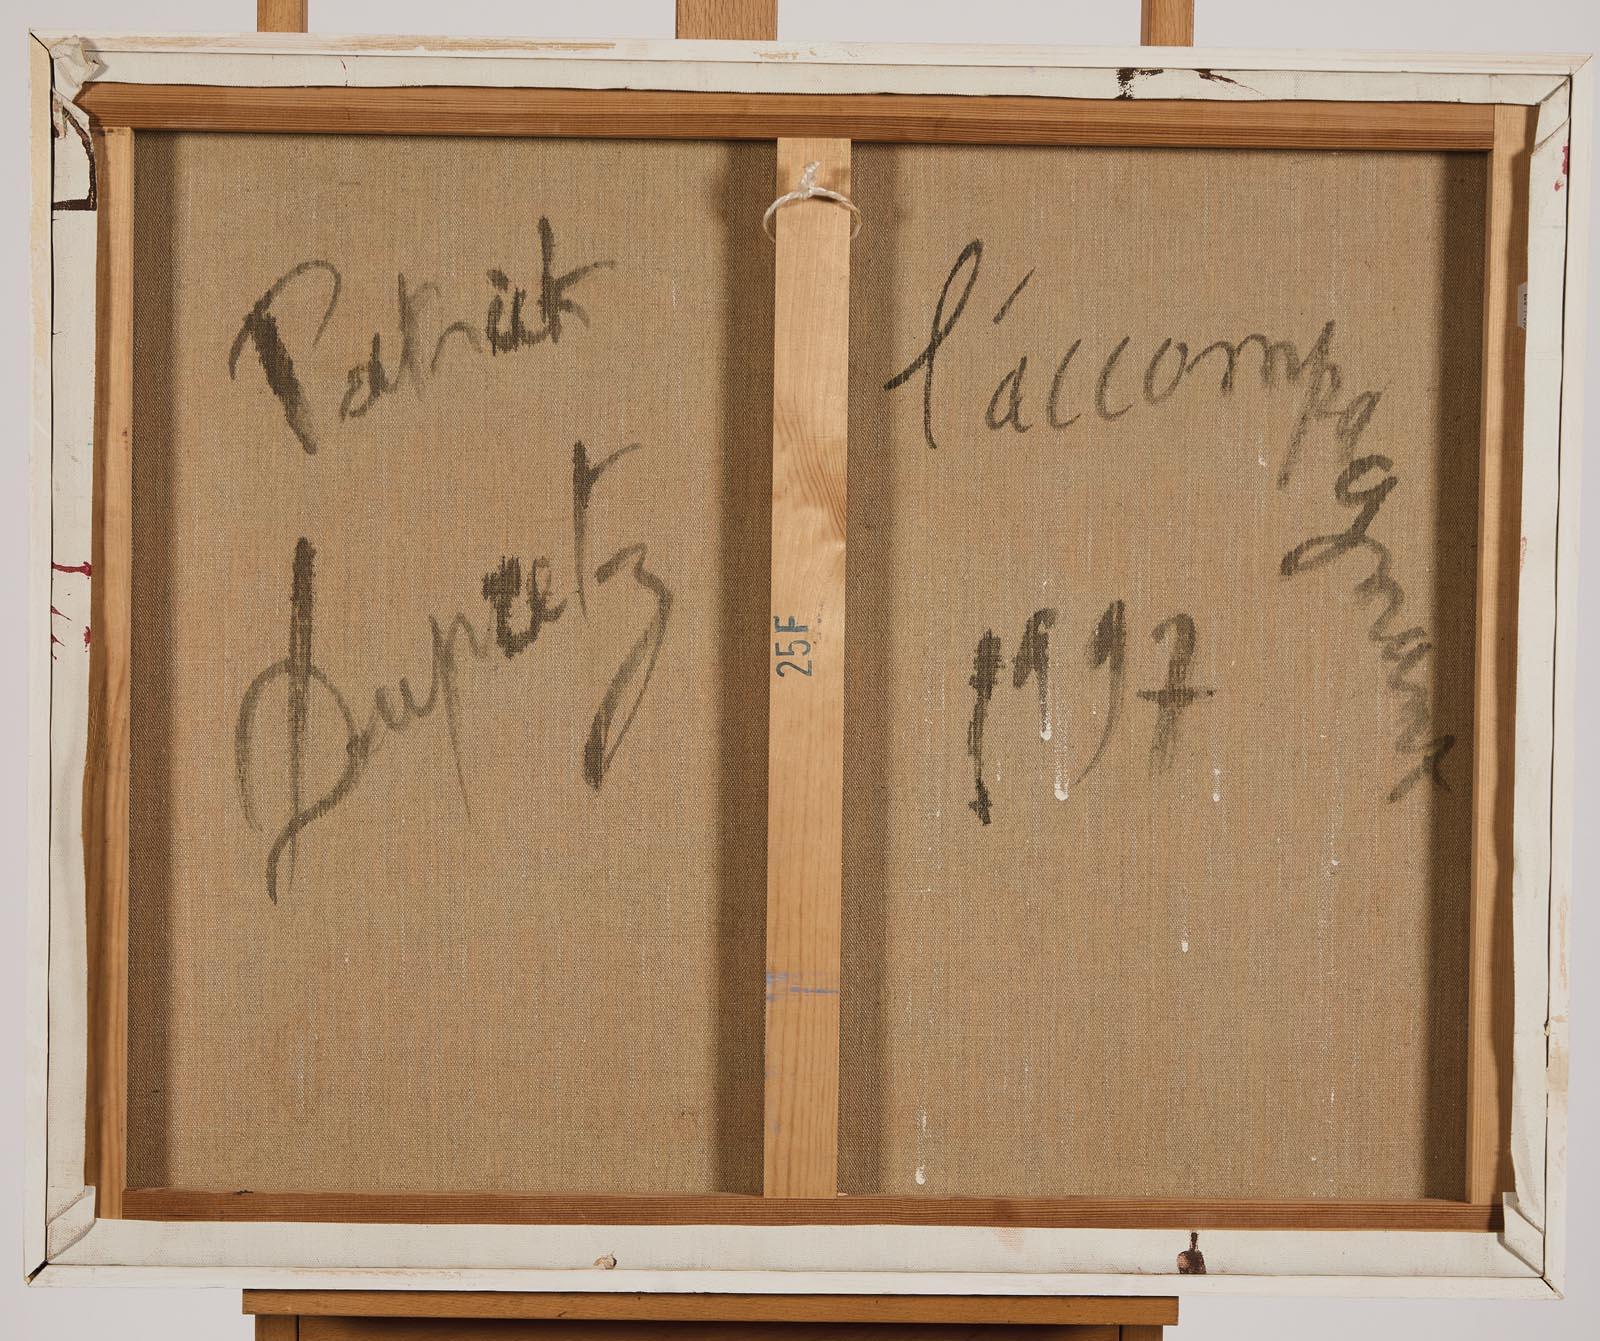 Patrick
Dupretz
l'accompagnant
1997
25F